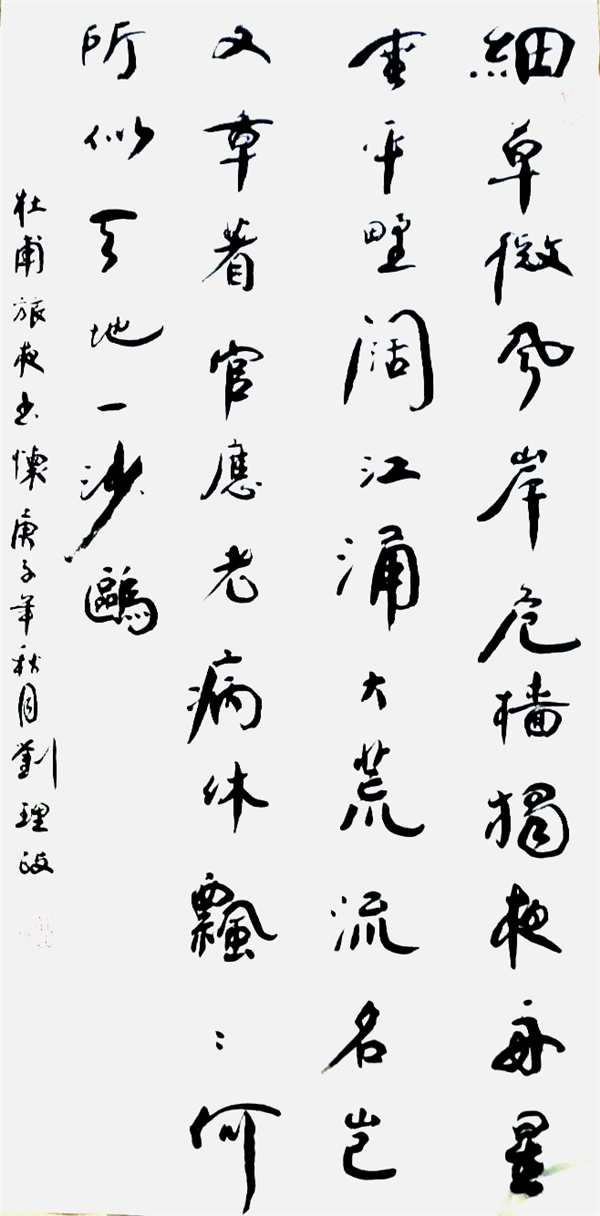 細草微风岸危檣獨夜舟星
垂平野阔江涌大荒流名岂
文章着官應老病休飄〻何
所似天地一沙鷗
杜甫旅夜书懷庚子年秋月劉理政